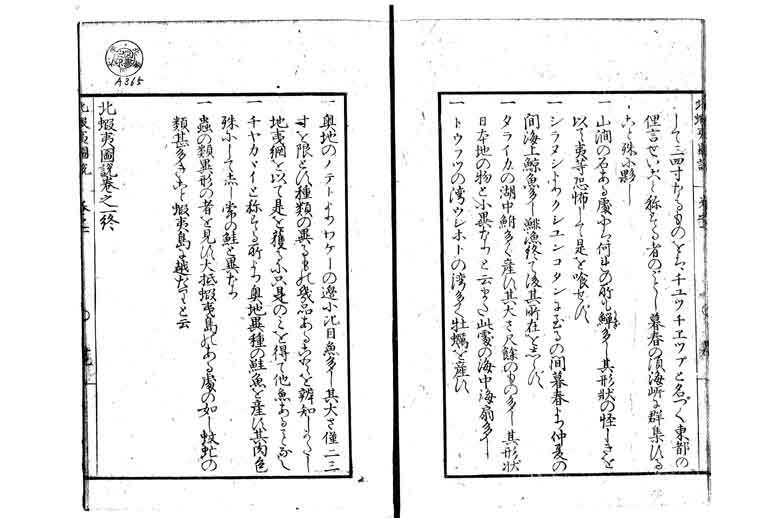 して三四寸なるものをはチエツチエツプと名づく東都の
俚言せいごと称する者のごとし暮春の頃海岸に群集する
こと殊に夥し
一 山澗の石ある処にハ何れの所も多し其形状の怪しきを
以て夷等恐怖して是を喰せず
一 シラヌシよりクシユンコタンに至るの間暮春より仲夏の
間海上鯨魚多し鯡漁終て後其所在をしらず
一 タライカの湖中鮒多く産す其大さ尺余のもの多し其形状
日本地の物と小異なりと云また此処の海中海扇多し
一 トウフツの湾ウレホトーの湾多く牡蠣を産す
一 奥地のノテトよりワゲーの辺小比目魚多し其大さ僅二三
寸を限とす種類の異るもの幾品あることを弁知しがたし
地夷網を以て是を獲るに只是のミを得て他魚あることなし
一 チヤカヾイと称する所より奥地異種の鮭魚を産す其肉色
殊にして赤し常の鮭と異なり
一 虫の類異形の者を見ず大抵蝦夷島にある処の如し蚊虻の
類甚多きこと蝦夷島に越たりと云
北蝦夷図説巻之二終
A265